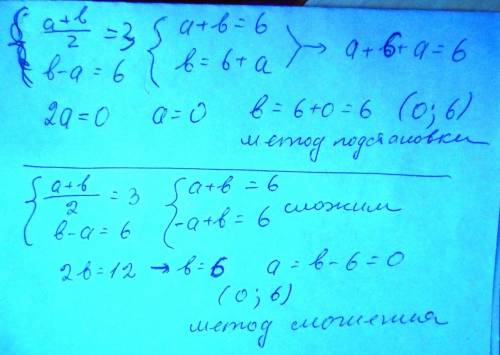 { (a+b)/2 = 3, b-a = 6 { a+b = 6, b = 6+a } → a+6+a = 6
2a = 0 a = 0 b = 6+0 = 6 (0; 6)
метод подстановки
{ (a+b)/2 = 3, b-a = 6 { a+b = 6, -a+b = 6 сложим
2b = 12 → b = 6 a = b-6 = 0
(0; 6)
метод сложения